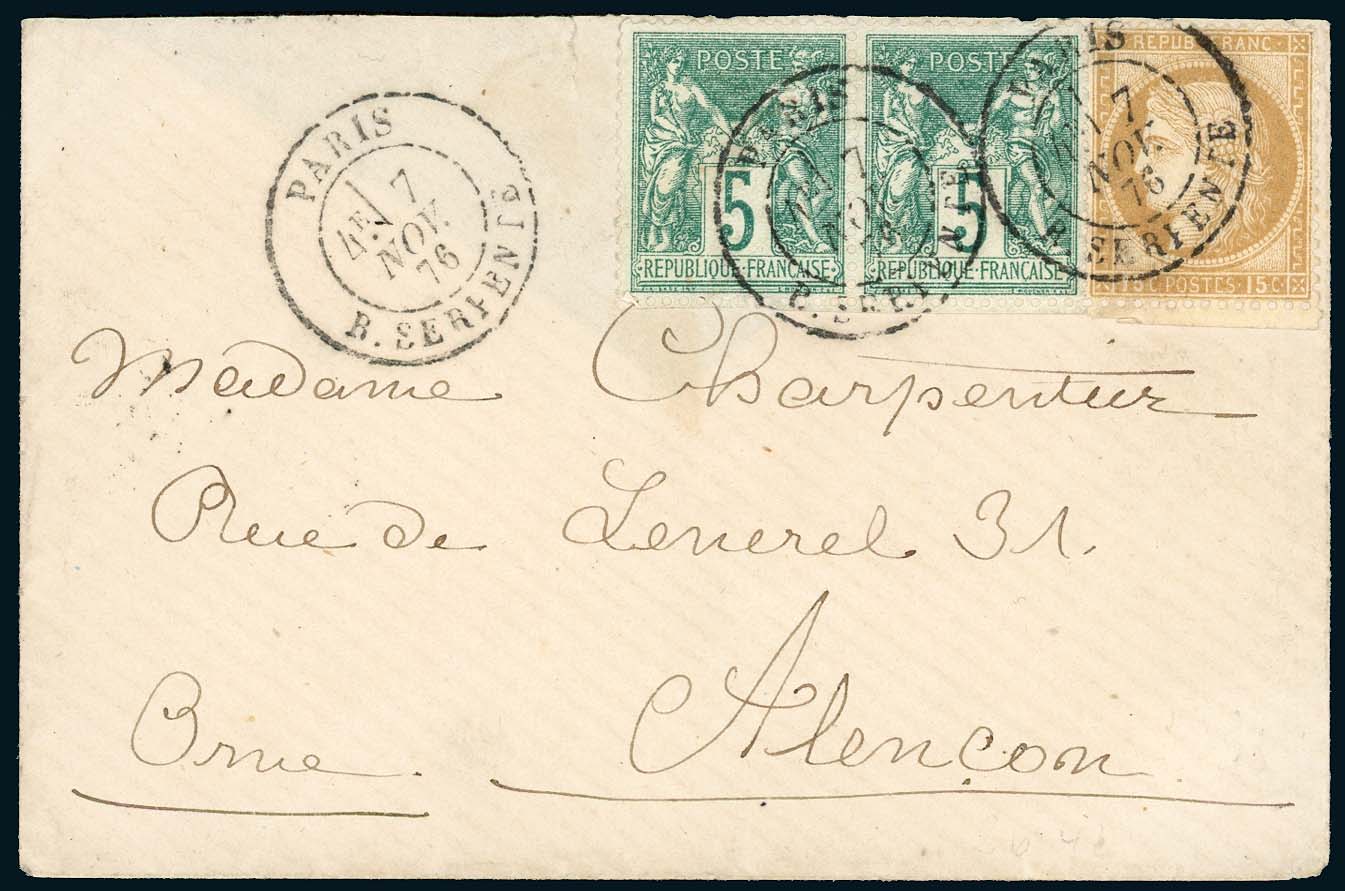 POSTE POSTE REPUB. FRANC.
5 5
REPUBLIQUE·FRANÇAISE REPUBLIQUE·FRANÇAISE 15C. POSTES·15C.
PARIS
4E/ 7
NOV.
76
R. SERPENTE
PARIS
7
NOV.
R. SERPENTE
PARIS
7
NOV.
76
R. SERPENTE
Madame Charpentier
Rue de Lenerel 31.
Orne. Alençon